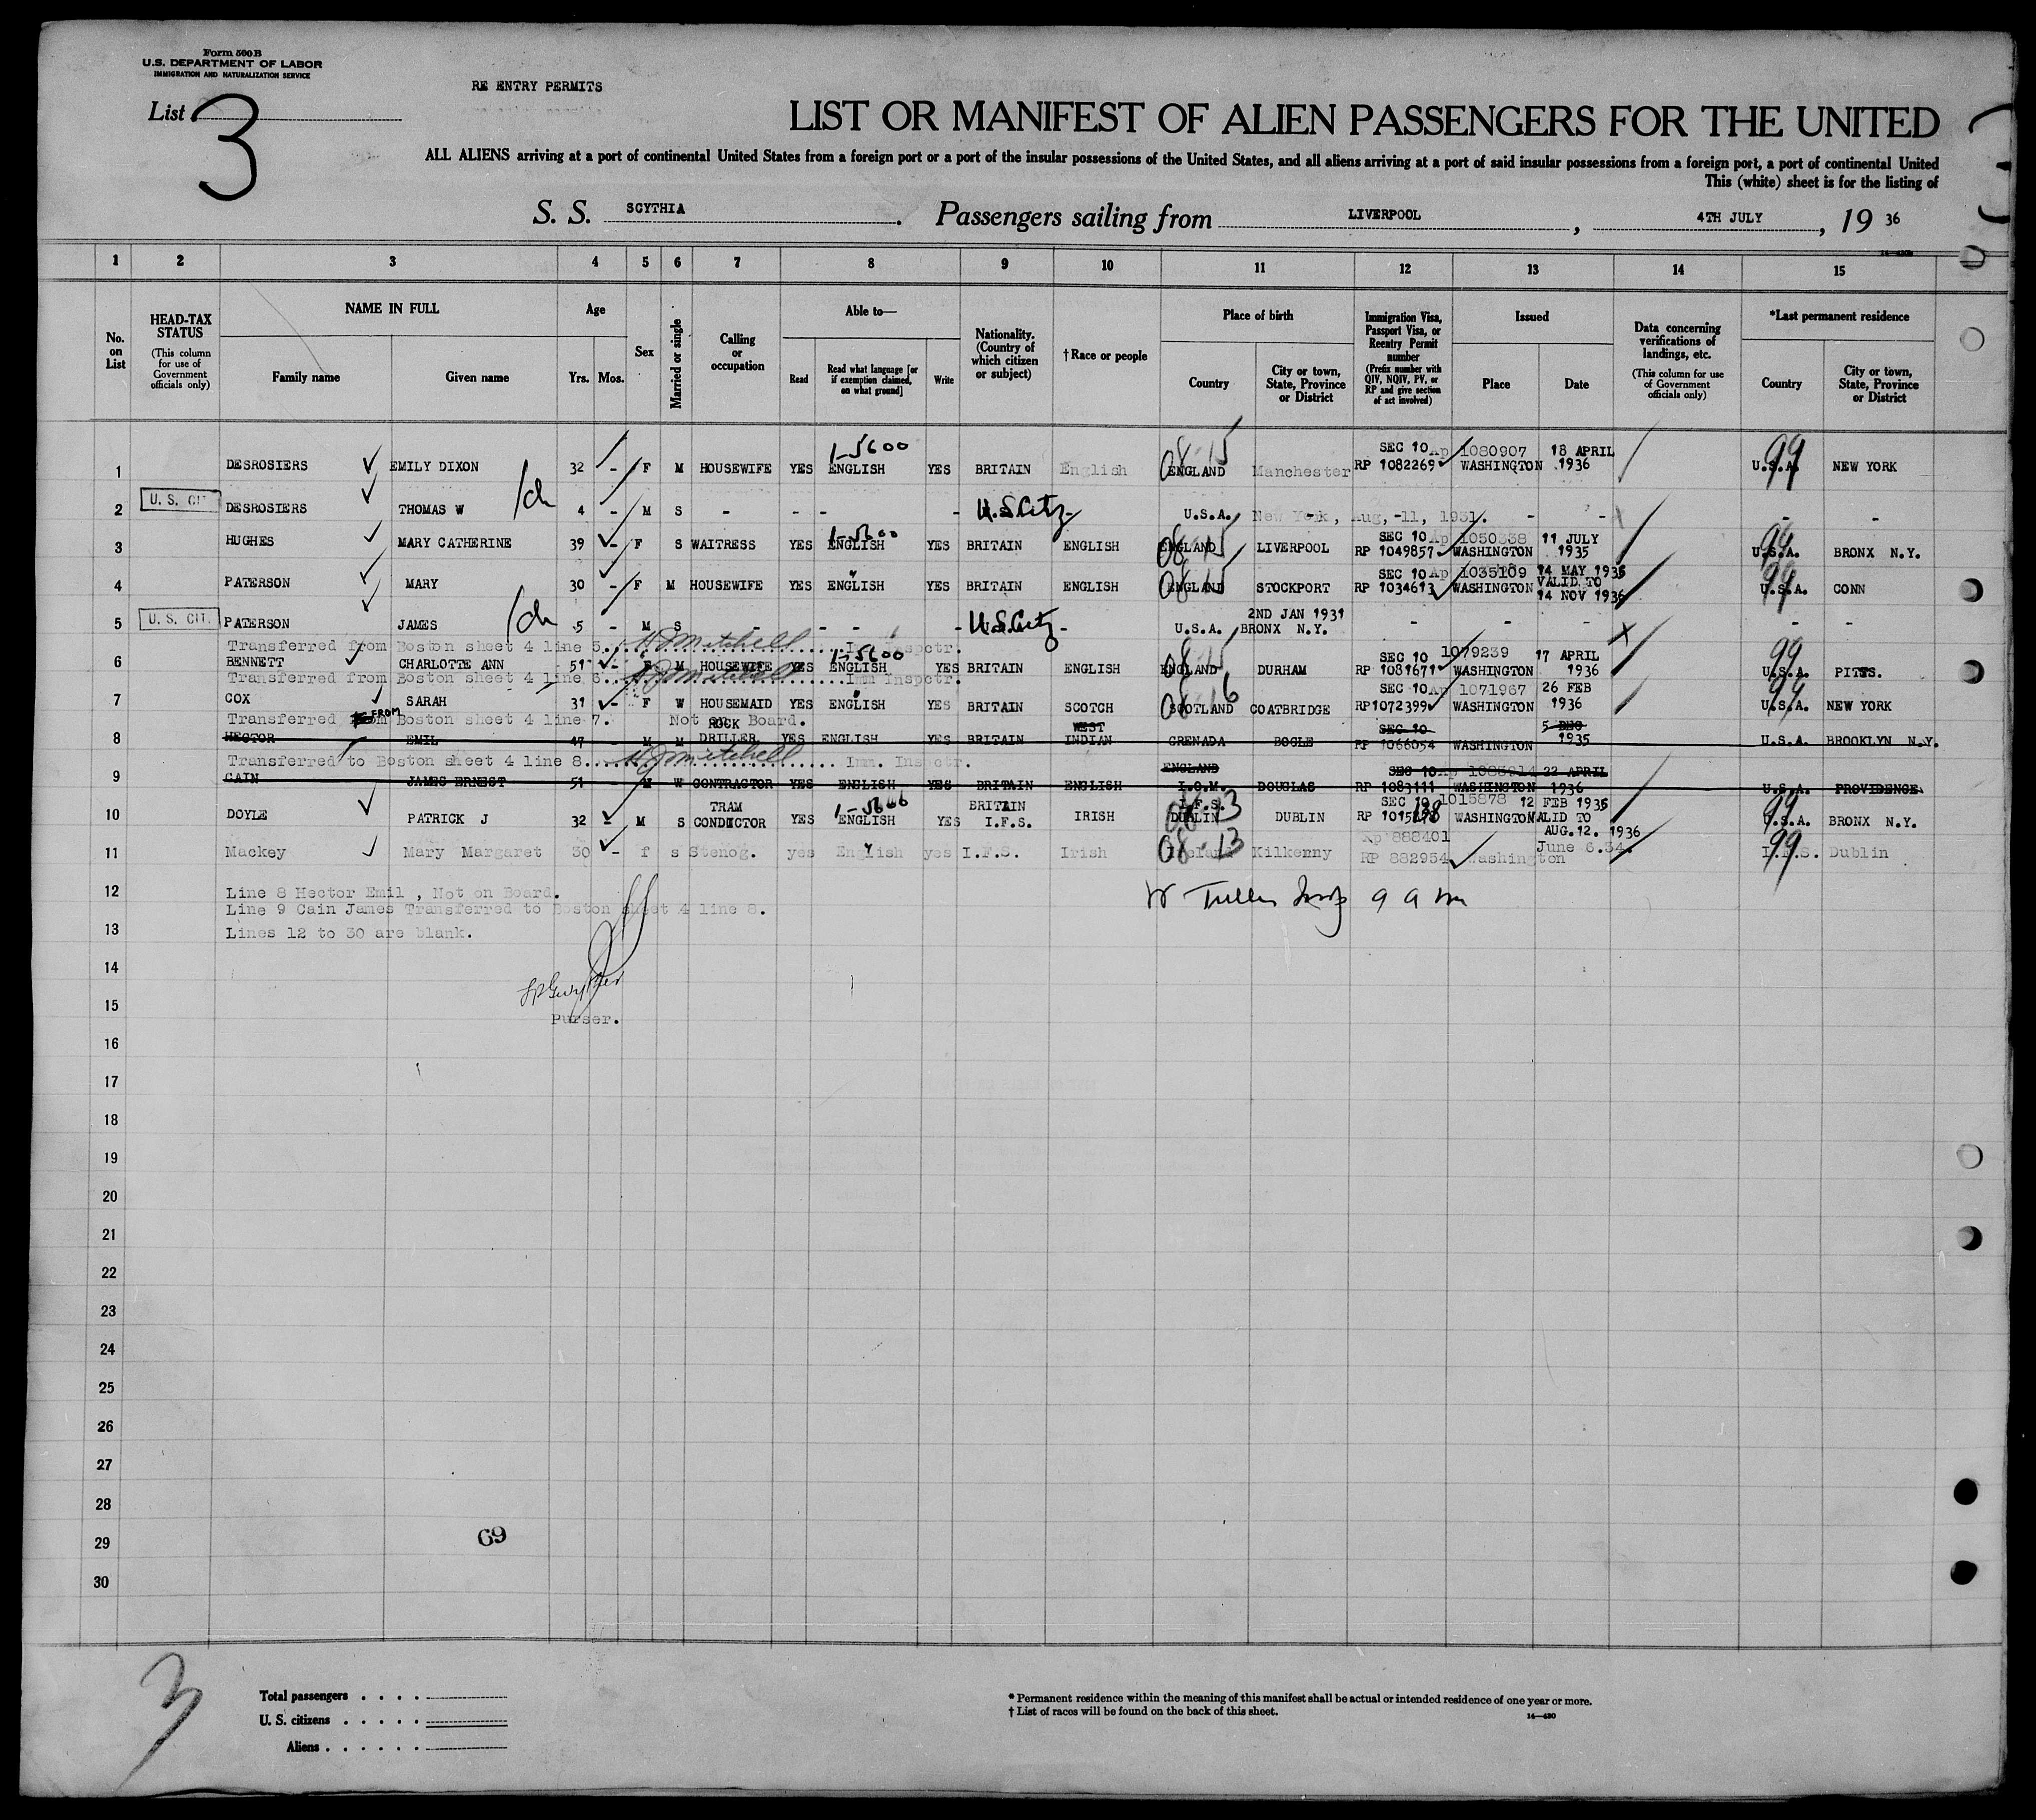 Form 500 B
U.S. DEPARTMENT OF LABOR
IMMIGRATION AND NATURALIZATION SERVICE
RE ENTRY PERMITS
List 3
LIST OR MANIFEST OF ALIEN PASSENGERS FOR THE UNITED
ALL ALIENS arriving at a port of continental United States from a foreign port or a port of the insular possessions of the United States, and all aliens arriving at a port of said insular possessions from a foreign port, a port of continental United
This (white) sheet is for the listing of
S. S. SCYTHIA. Passengers sailing from LIVERPOOL, 4TH JULY, 19 36
1 2 3 4 5 6 7 8 9 10 11 12 13 14 15
No. on List
HEAD-TAX STATUS (This column for use of Government officials only)
NAME IN FULL
Family name
Given name
Age
Yrs. Mos.
Sex
Married or single
Calling or occupation
Able to—
Read
Read what language [or if exemption claimed, on what ground]
Write
Nationality. (Country of which citizen or subject)
†Race or people
Place of birth
Country
City or town, State, Province or District
Immigration Visa, Passport Visa, or Reentry Permit number (Prefix number with QIV, NQIV, PV, or RP and give section of act involved)
Issued
Place
Date
Data concerning verifications of landings, etc. (This column for use of Government officials only)
*Last permanent residence
Country
City or town, State, Province or District
1-5600 08-15 SEC 10 Ap 1080907 18 APRIL 99
1 DESROSIERS EMILY DIXON 32 - F M HOUSEWIFE YES ENGLISH YES BRITAIN English ENGLAND Manchester RP 1082269 WASHINGTON 1936 U.S.A. NEW YORK
2 U. S. CIT DESROSIERS THOMAS W 4 - M S - - - - U.S. Citz - U.S.A. New York, Aug, -11, 1931. - - - -
1-5600 08-15 SEC 10 Ap 1050338 11 JULY 99
3 HUGHES MARY CATHERINE 39 - F S WAITRESS YES ENGLISH YES BRITAIN ENGLISH ENGLAND LIVERPOOL RP 1049857 WASHINGTON 1935 U.S.A. BRONX N.Y.
SEC 10 Ap 1035109 14 MAY 1935 99
4 PATERSON MARY 30 - F M HOUSEWIFE YES ENGLISH YES BRITAIN ENGLISH ENGLAND STOCKPORT RP 1034613 WASHINGTON VALID TO 14 NOV 1936 U.S.A. CONN
2ND JAN 1931
5 U. S. CIT. PATERSON JAMES 5 - M S - - - - U.S. Citz - U.S.A. BRONX N.Y. - - - - -
Transferred from Boston sheet 4 line 5. H J Mitchell Imm Inspctr.
1-5600 SEC 10 1079239 17 APRIL 99
6 BENNETT CHARLOTTE ANN 51 - F M HOUSEWIFE YES ENGLISH YES BRITAIN ENGLISH ENGLAND DURHAM RP 1081671 WASHINGTON 1936 U.S.A. PITTS.
Transferred from Boston sheet 4 line 6 H J Mitchell Imm Inspctr.
08-16 SEC 10 Ap 1071967 26 FEB 99
7 COX SARAH 31 - F W HOUSEMAID YES ENGLISH YES BRITAIN SCOTCH SCOTLAND COATBRIDGE RP 1072399 WASHINGTON 1936 U.S.A. NEW YORK
Transferred FROM Boston sheet 4 line 7. Not on Board.
ROCK WEST SEC 10 5 DEC
8 HECTOR EMIL 47 - M M DRILLER YES ENGLISH YES BRITAIN INDIAN GRENADA BOGLE RP 1066054 WASHINGTON 1935 U.S.A. BROOKLYN N.Y.
Transferred to Boston sheet 4 line 8. H J Mitchell Imm. Inspctr.
ENGLAND SEC 10 22 APRIL
9 CAIN JAMES ERNEST 51 M W CONTRACTOR YES ENGLISH YES BRITAIN ENGLISH I.O.M. DOUGLAS RP 1083111 WASHINGTON 1936 U.S.A. PROVIDENCE
TRAM BRITAIN I.F.S. 08-13 SEC 10 1015878 12 FEB 1935 99
10 DOYLE PATRICK J 32 - M S CONDUCTOR YES ENGLISH YES I.F.S. IRISH DUBLIN DUBLIN RP WASHINGTON VALID TO AUG. 12. 1936 U.S.A. BRONX N.Y.
08-13 Rp 888401 June 6.34. 99
11 Mackey Mary Margaret 30 - f s Stenog. yes English yes I.F.S. Irish Ireland Kilkenny RP 882954 Washington I.F.S. Dublin
12 Line 8 Hector Emil , Not on Board.
Line 9 Cain James Transferred to Boston sheet 4 line 8.
13 Lines 12 to 30 are blank.
14
15
Purser.
16
17
18
19
20
21
22
23
24
25
26
27
28
29
69
30
3
Total passengers
U. S. citizens
Aliens
* Permanent residence within the meaning of this manifest shall be actual or intended residence of one year or more.
† List of races will be found on the back of this sheet.
14—430